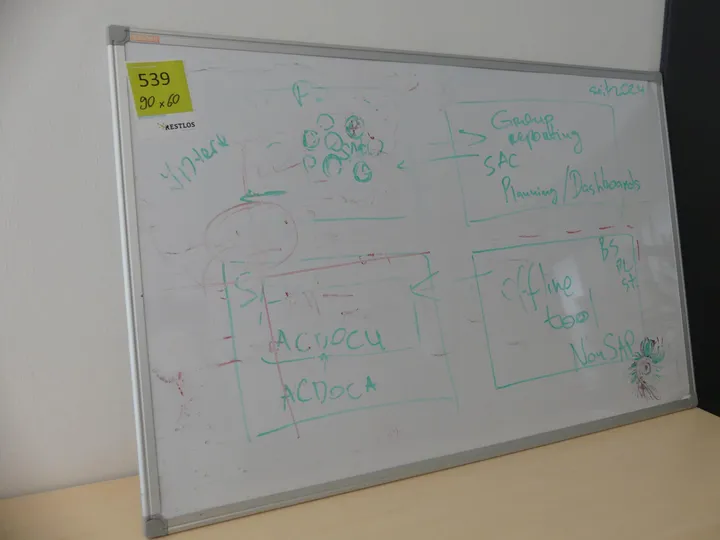 539
90 x 60
RESTLOS
Group
reporting
SAC
Planning / Dashboards
BS
PL
Offline
tool
Non SAP
ACDOCU
ACDOCA